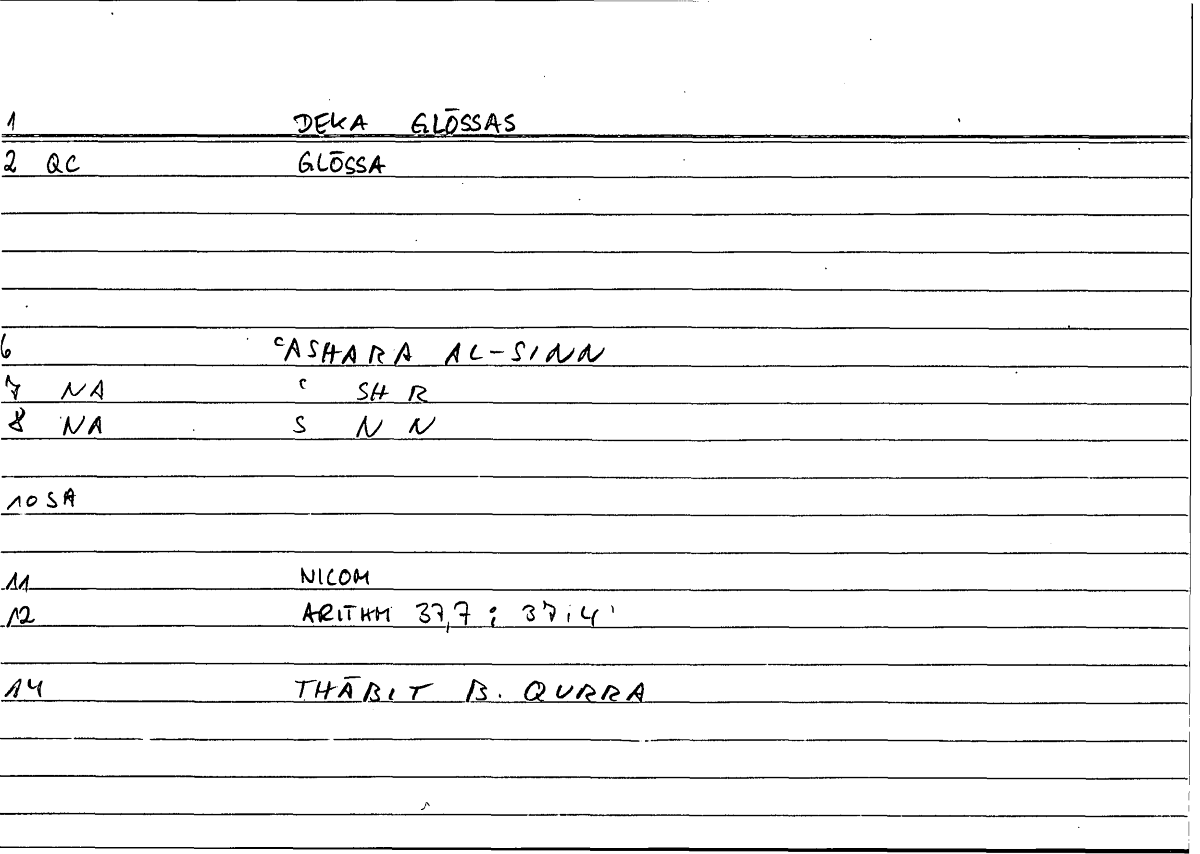 1 DEKA GLŌSSAS
2 QC GLŌSSA
6 ʿASHARA AL-SINN
7 NA ʿ SH R
8 NA S N N
10 SA
11 NICOM
12 ARITHM 37,7 ; 37;4
14 THĀBIT B. QURRA